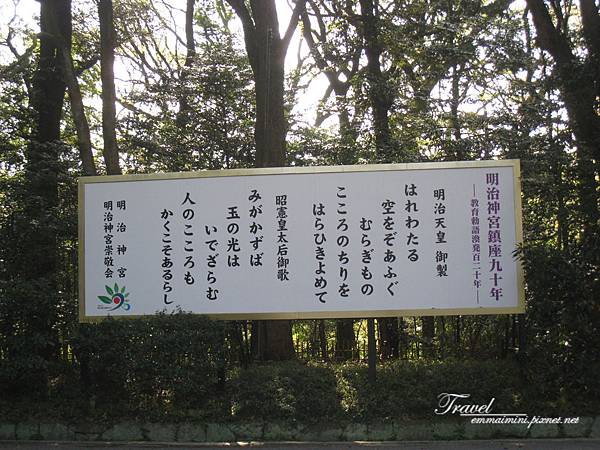 明治神宮鎮座九十年
―教育勅語渙発百二十年―
明治天皇 御製
はれわたる
空をぞあふぐ
むらぎもの
こころのちりを
はらひきよめて
昭憲皇太后御歌
みがかずば
玉の光は
いでざらむ
人のこころも
かくこそあるらし
明治神宮
明治神宮崇敬会
Travel
emmaimini.pixnet.net